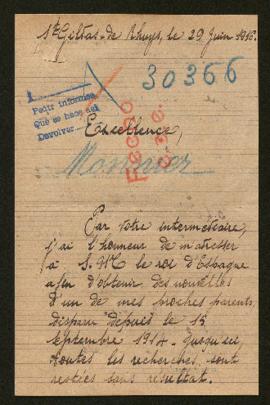 St Gildas-de Rhuys, le 29 Juin 1916.
30366
Pedir informes
Que se hace del
Devolver
Excellence,
Monnier
Par votre intermédiaire,
j'ai l'honneur de m'adresser
à S. M. le roi d'Espagne
afin d'obtenir des nouvelles
d'un de mes proches parents,
disparu depuis le 15
septembre 1914. Jusqu'ici,
toutes les recherches sont
restées sans résultat.